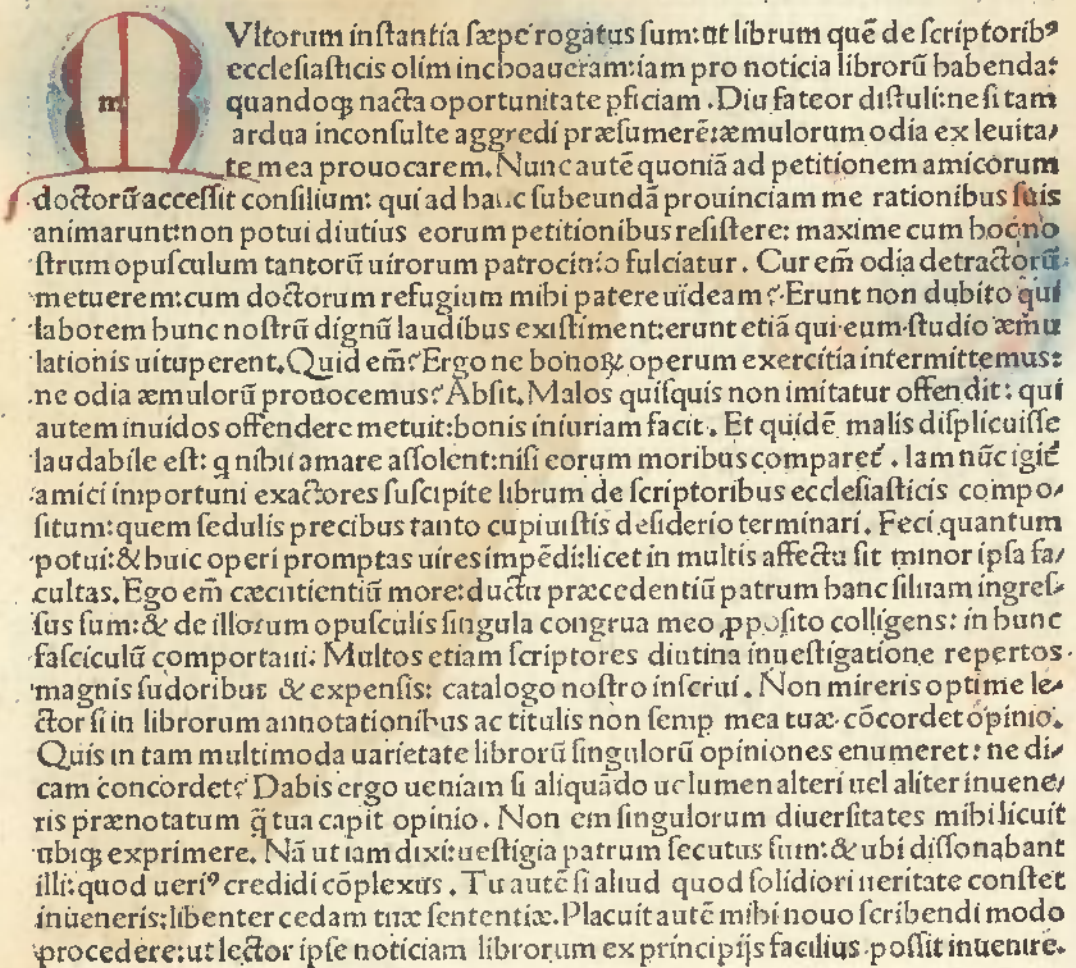 MVltorum inſtantia ſæpe rogatus ſum: ut librum quē de ſcriptoribꝰ
eccleſiaſticis olim inchoaueram: iam pro noticia librorū habenda:
quandoqꝫ nacta oportunitate ꝑficiam. Diu fateor diſtuli: ne ſi tam
ardua inconſulte aggredi præſumerē: æmulorum odia ex leuita/
te mea prouocarem. Nunc autē quoniā ad petitionem amicorum
doctorū acceſſit conſilium: qui ad hanc ſubeundā prouinciam me rationibus ſuis
animarunt: non potui diutius eorum petitionibus reſiſtere: maxime cum hoc no
ſtrum opuſculum tantorū uirorum patrocinio fulciatur. Cur em̄ odia detractorū
metuerem: cum doctorum refugium mihi patere uideam? Erunt non dubito qui
laborem hunc noſtrū dignū laudibus exiſtiment: erunt etiā qui eum ſtudio æmu
lationis uituperent. Quid em̄? Ergo ne bonoꝝ operum exercitia intermittemus:
ne odia æmulorū prouocemus? Abſit. Malos quiſquis non imitatur offendit: qui
autem inuidos offendere metuit: bonis iniuriam facit. Et quidē malis diſplicuiſſe
laudabile eſt: q nihil amare aſſolent: niſi eorum moribus comparet̄. Iam nūc igit̄
amici importuni exactores ſuſcipite librum de ſcriptoribus eccleſiaſticis compo/
ſitum: quem ſedulis precibus tanto cupiuiſtis deſiderio terminari. Feci quantum
potui: & huic operi promptas uires impēdi: licet in multis affectu ſit minor ipſa fa/
cultas. Ego em̄ cæcutientiū more: ductu præcedentiū patrum hanc ſiluam ingreſ/
ſus ſum: & de illorum opuſculis ſingula congrua meo ꝓpoſito colligens: in hunc
faſciculū comportaui. Multos etiam ſcriptores diutina inueſtigatione repertos
magnis ſudoribus & expenſis: catalogo noſtro inſerui. Non mireris optime le/
ctor ſi in librorum annotationibus ac titulis non ſemp mea tuæ cōcordet opinio.
Quis in tam multimoda uarietate librorū ſingulorū opiniones enumeret: ne di/
cam concordet? Dabis ergo ueniam ſi aliquādo uolumen alteri uel aliter inuene/
ris prænotatum q̄ tua capit opinio. Non em ſingulorum diuerſitates mihi licuit
ubiqꝫ exprimere. Nā ut iam dixi: ueſtigia patrum ſecutus ſum: & ubi diſſonabant
illi: quod ueriꝰ credidi cōplexus. Tu autē ſi aliud quod ſolidiori ueritate conſtet
inueneris: libenter cedam tuæ ſententiæ. Placuit autē mihi nouo ſcribendi modo
procedere: ut lector ipſe noticiam librorum ex principijs facilius poſſit inuenire.